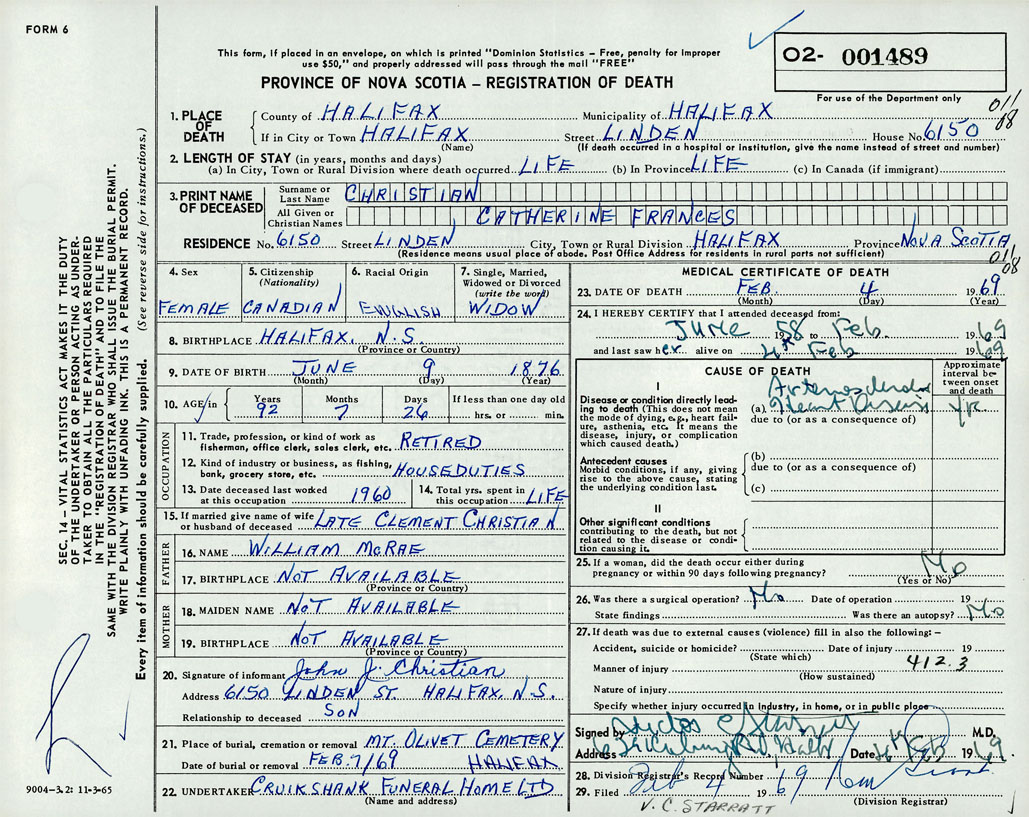 FORM 6
This form, if placed in an envelope, on which is printed "Dominion Statistics – Free, penalty for improper
use $50," and properly addressed will pass through the mail "FREE"
PROVINCE OF NOVA SCOTIA – REGISTRATION OF DEATH
02- 001489
For use of the Department only
011
08
1. PLACE OF DEATH
County of HALIFAX Municipality of HALIFAX
If in City or Town HALIFAX Street LINDEN House No. 6150
(Name) (If death occurred in a hospital or institution, give the name instead of street and number)
2. LENGTH OF STAY (in years, months and days)
(a) In City, Town or Rural Division where death occurred LIFE (b) In Province LIFE (c) In Canada (if immigrant)
3. PRINT NAME OF DECEASED
Surname or Last Name CHRISTIAN
All Given or Christian Names CATHERINE FRANCES
RESIDENCE No. 6150 Street LINDEN City, Town or Rural Division HALIFAX Province NOVA SCOTIA
(Residence means usual place of abode. Post Office Address for residents in rural parts not sufficient)
011
08
4. Sex FEMALE
5. Citizenship (Nationality) CANADIAN
6. Racial Origin ENGLISH
7. Single, Married, Widowed or Divorced (write the word) WIDOW
8. BIRTHPLACE HALIFAX, N.S.
(Province or Country)
9. DATE OF BIRTH JUNE 9 1876
(Month) (Day) (Year)
10. AGE in Years 92 Months 7 Days 26 If less than one day old hrs. or min.
OCCUPATION
11. Trade, profession, or kind of work as RETIRED
fisherman, office clerk, sales clerk, etc.
12. Kind of industry or business, as fishing, HOUSEDUTIES
bank, grocery store, etc.
13. Date deceased last worked at this occupation 1960
14. Total yrs. spent in this occupation LIFE
15. If married give name of wife or husband of deceased LATE CLEMENT CHRISTIAN
FATHER
16. NAME WILLIAM McRAE
17. BIRTHPLACE NOT AVAILABLE
(Province or Country)
MOTHER
18. MAIDEN NAME NOT AVAILABLE
19. BIRTHPLACE NOT AVAILABLE
(Province or Country)
20. Signature of informant John J. Christian
Address 6150 LINDEN ST. HALIFAX, N.S.
Relationship to deceased SON
21. Place of burial, cremation or removal MT. OLIVET CEMETERY
Date of burial or removal FEB. 7/69 HALIFAX
22. UNDERTAKER CRUIKSHANK FUNERAL HOME LTD
(Name and address)
MEDICAL CERTIFICATE OF DEATH
23. DATE OF DEATH FEB. 4 1969
(Month) (Day) (Year)
24. I HEREBY CERTIFY that I attended deceased from:
June 1958 to Feb 1969
and last saw her alive on 4th Feb 1969
CAUSE OF DEATH
Approximate interval between onset and death
I
Disease or condition directly leading to death (This does not mean the mode of dying, e.g., heart failure, asthenia, etc. It means the disease, injury, or complication which caused death.)
(a) Heart Disease
due to (or as a consequence of)
Antecedent causes
Morbid conditions, if any, giving rise to the above cause, stating the underlying condition last.
(b)
due to (or as a consequence of)
(c)
II
Other significant conditions
contributing to the death, but not related to the disease or condition causing it.
25. If a woman, did the death occur either during
pregnancy or within 90 days following pregnancy? No
(Yes or No)
26. Was there a surgical operation? No Date of operation 19
State findings Was there an autopsy? No
27. If death was due to external causes (violence) fill in also the following:–
Accident, suicide or homicide? Date of injury 19
(State which)
Manner of injury 412.3
(How sustained)
Nature of injury
Specify whether injury occurred in industry, in home, or in public place
Signed by M.D.
Date 4th Feb 1969
28. Division Registrar's Record Number
29. Filed Feb 4 1969
(Division Registrar)
V. C. STARRATT
SEC. 14 – VITAL STATISTICS ACT MAKES IT THE DUTY
OF THE UNDERTAKER OR PERSON ACTING AS UNDER-
TAKER TO OBTAIN ALL THE PARTICULARS REQUIRED
IN THE "REGISTRATION OF DEATH" AND TO FILE THE
SAME WITH THE DIVISION REGISTRAR WHO SHALL ISSUE THE BURIAL PERMIT.
WRITE PLAINLY WITH UNFADING INK. THIS IS A PERMANENT RECORD.
Every item of information should be carefully supplied. (See reverse side for instructions.)
9004-3.2: 11-3-65